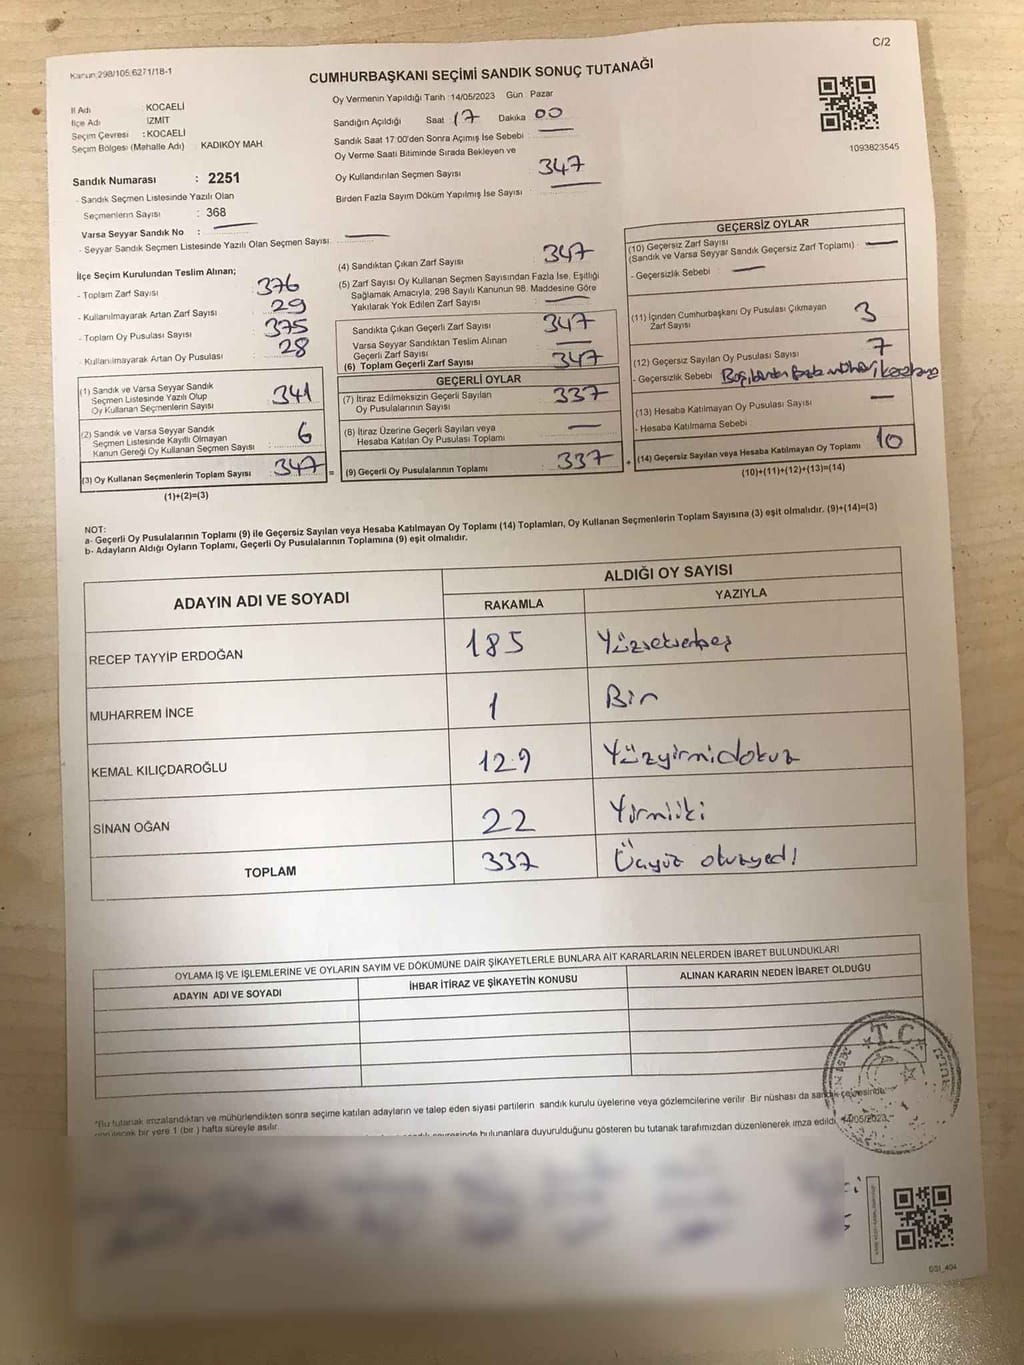 C/2
Kanun:298/105.6271/18-1
CUMHURBAŞKANI SEÇİMİ SANDIK SONUÇ TUTANAĞI
İl Adı : KOCAELİ
İlçe Adı İZMİT
Seçim Çevresi : KOCAELİ
Seçim Bölgesi (Mahalle Adı) KADIKÖY MAH.
Sandık Numarası : 2251
- Sandık Seçmen Listesinde Yazılı Olan
Seçmenlerin Sayısı : 368
Varsa Seyyar Sandık No :
- Seyyar Sandık Seçmen Listesinde Yazılı Olan Seçmen Sayısı:
Oy Vermenin Yapıldığı Tarih :14/05/2023 Gün : Pazar
Sandığın Açıldığı Saat 17 Dakika 00
Sandık Saat 17:00'den Sonra Açımış İse Sebebi :
Oy Verme Saati Bitiminde Sırada Bekleyen ve
Oy Kullandırılan Seçmen Sayısı : 347
Birden Fazla Sayım Döküm Yapılmış İse Sayısı :
1093823545
İlçe Seçim Kurulundan Teslim Alınan;
- Toplam Zarf Sayısı : 376
- Kullanılmayarak Artan Zarf Sayısı : 29
- Toplam Oy Pusulası Sayısı : 375
- Kullanılmayarak Artan Oy Pusulası : 28
(1) Sandık ve Varsa Seyyar Sandık
Seçmen Listesinde Yazılı Olup
Oy Kullanan Seçmenlerin Sayısı : 341
(2) Sandık ve Varsa Seyyar Sandık
Seçmen Listesinde Kayıtlı Olmayan
Kanun Gereği Oy Kullanan Seçmen Sayısı : 6
(3) Oy Kullanan Seçmenlerin Toplam Sayısı : 347 =
(1)+(2)=(3)
(4) Sandıktan Çıkan Zarf Sayısı : 347
(5) Zarf Sayısı Oy Kullanan Seçmen Sayısından Fazla İse, Eşitliği
Sağlamak Amacıyla, 298 Sayılı Kanunun 98. Maddesine Göre
Yakılarak Yok Edilen Zarf Sayısı :
Sandıkta Çıkan Geçerli Zarf Sayısı : 347
Varsa Seyyar Sandıktan Teslim Alınan
Geçerli Zarf Sayısı :
(6) Toplam Geçerli Zarf Sayısı : 347
GEÇERLİ OYLAR
(7) İtiraz Edilmeksizin Geçerli Sayılan
Oy Pusulalarının Sayısı : 337
(8) İtiraz Üzerine Geçerli Sayılan veya
Hesaba Katılan Oy Pusulası Toplamı :
(9) Geçerli Oy Pusulalarının Toplamı : 337 +
GEÇERSİZ OYLAR
(10) Geçersiz Zarf Sayısı
(Sandık ve Varsa Seyyar Sandık Geçersiz Zarf Toplamı) :
- Geçersizlik Sebebi :
(11) İçinden Cumhurbaşkanı Oy Pusulası Çıkmayan
Zarf Sayısı : 3
(12) Geçersiz Sayılan Oy Pusulası Sayısı : 7
- Geçersizlik Sebebi
(13) Hesaba Katılmayan Oy Pusulası Sayısı :
- Hesaba Katılmama Sebebi :
(14) Geçersiz Sayılan veya Hesaba Katılmayan Oy Toplamı : 10
(10)+(11)+(12)+(13)=(14)
NOT:
a- Geçerli Oy Pusulalarının Toplamı (9) ile Geçersiz Sayılan veya Hesaba Katılmayan Oy Toplamı (14) Toplamları, Oy Kullanan Seçmenlerin Toplam Sayısına (3) eşit olmalıdır. (9)+(14)=(3)
b- Adayların Aldığı Oyların Toplamı, Geçerli Oy Pusulalarının Toplamına (9) eşit olmalıdır.
ADAYIN ADI VE SOYADI
ALDIĞI OY SAYISI
RAKAMLA YAZIYLA
RECEP TAYYİP ERDOĞAN 185 Yüzseksenbeş
MUHARREM İNCE 1 Bir
KEMAL KILIÇDAROĞLU 129 Yüzyirmidokuz
SİNAN OĞAN 22 Yirmiiki
TOPLAM 337 Üçyüz otuzyedi
OYLAMA İŞ VE İŞLEMLERİNE VE OYLARIN SAYIM VE DÖKÜMÜNE DAİR ŞİKAYETLERLE BUNLARA AİT KARARLARIN NELERDEN İBARET BULUNDUKLARI
ADAYIN ADI VE SOYADI İHBAR İTİRAZ VE ŞİKAYETİN KONUSU ALINAN KARARIN NEDEN İBARET OLDUĞU
T.C.
*Bu tutanak imzalandıktan ve mühürlendikten sonra seçime katılan adayların ve talep eden siyasi partilerin sandık kurulu üyelerine veya gözlemcilerine verilir. Bir nüshası da sandık çevresinde
görülecek bir yere 1 (bir ) hafta süreyle asılır.
bulunanlara duyurulduğunu gösteren bu tutanak tarafımızdan düzenlenerek imza edildi. 14/05/2023